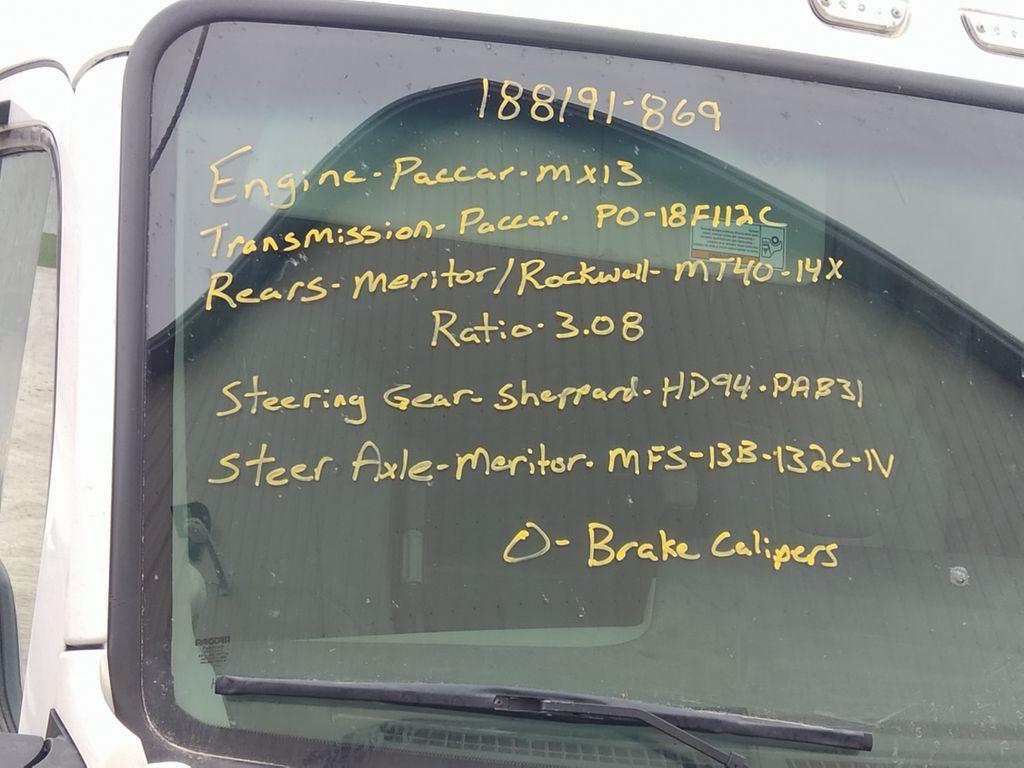 188191-869
Engine-Paccar-MX13
Transmission-Paccar- PO-18F112C
Rears-Meritor/Rockwell-MT40-14X
Ratio-3.08
Steering Gear-Sheppard-HD94-PAB31
Steer Axle-Meritor-MFS-13B-132C-1V
0-Brake Calipers